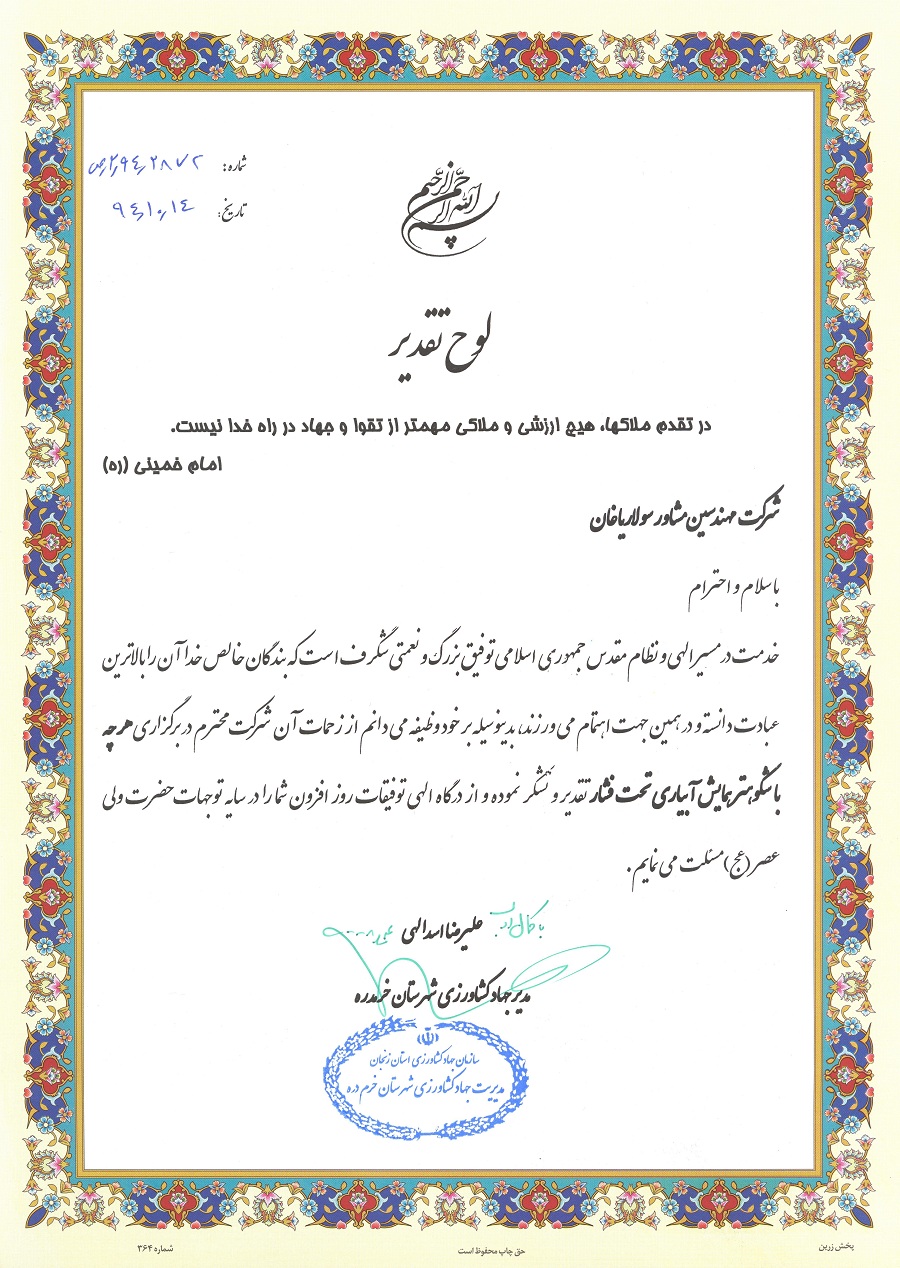 بسم الله الرحمن الرحیم
شماره: ۲۸۷۲
تاریخ: ۹۴٫۱۰٫۱۴
لوح تقدیر
در تقدم ملاکها، هیچ ارزشی و ملاکی مهمتر از تقوا و جهاد در راه خدا نیست.
امام خمینی (ره)
شرکت مهندسین مشاور سولار یاغان
با سلام و احترام
خدمت در مسیر الهی و نظام مقدس جمهوری اسلامی توفیق بزرگ و نعمتی شگرف است که بندگان خالص خدا آن را بالاترین
عبادت دانسته و در همین جهت اهتمام می ورزند، بدینوسیله بر خود وظیفه می دانم از زحمات آن شرکت محترم در برگزاری هرچه
باشکوهتر همایش آبیاری تحت فشار تقدیر و تشکر نموده و از درگاه الهی توفیقات روز افزون شما را در سایه توجهات حضرت ولی
عصر (عج) مسئلت می نمایم.
با کمال ادب
علیرضا اسدالهی
مدیر جهاد کشاورزی شهرستان خرمدره
سازمان جهاد کشاورزی استان زنجان
مدیریت جهاد کشاورزی شهرستان خرم دره
پخش زرین
حق چاپ محفوظ است
شماره ۳۶۴